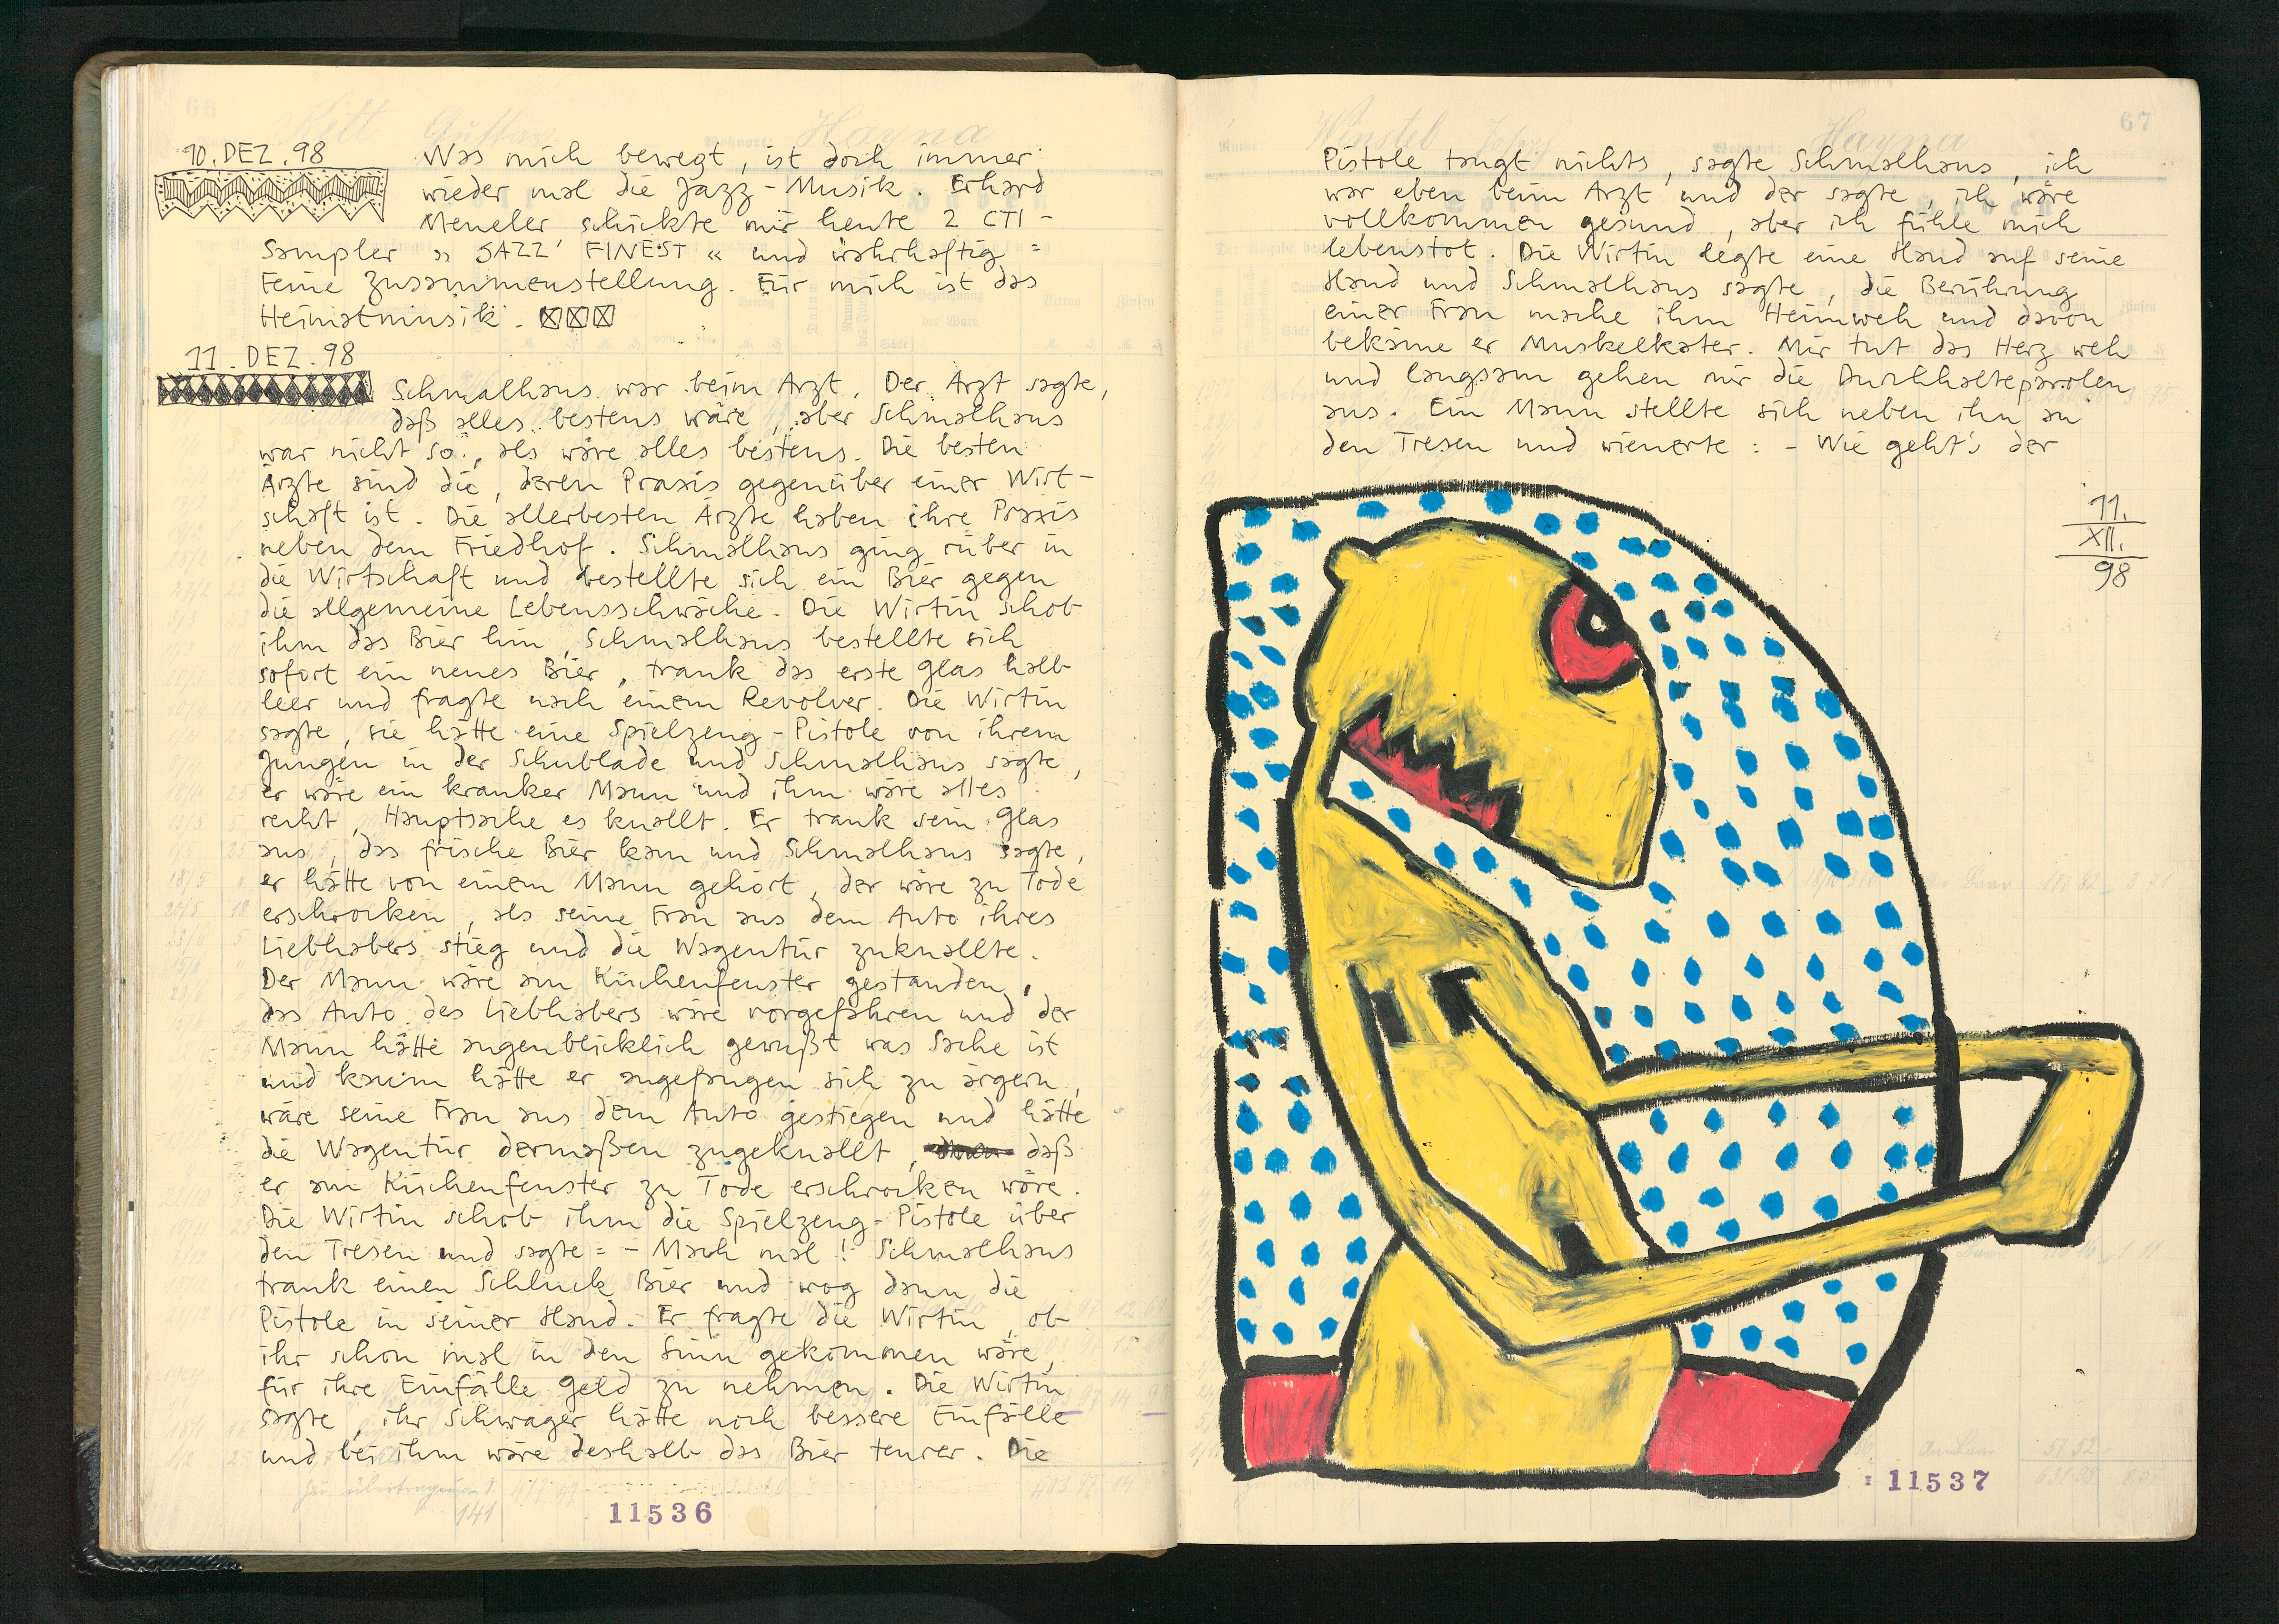 66
Kitt Gustav
Hayna
10. DEZ. 98
Was mich bewegt, ist doch immer
wieder mal die Jazz-Musik. Erhard
Meneler schickte mir heute 2 CTI-
Sampler » JAZZ' FINEST « und wahrhaftig =
Feine Zusammenstellung. Für mich ist das
Heimatmusik.
11. DEZ. 98
Schmalhans war beim Arzt. Der Arzt sagte,
daß alles bestens wäre, aber Schmalhans
war nicht so, als wäre alles bestens. Die besten
Ärzte sind die, deren Praxis gegenüber einer Wirt-
schaft ist. Die allerbesten Ärzte haben ihre Praxis
neben dem Friedhof. Schmalhans ging rüber in
die Wirtschaft und bestellte sich ein Bier gegen
die allgemeine Lebensschwäche. Die Wirtin schob
ihm das Bier hin, Schmalhans bestellte sich
sofort ein neues Bier, trank das erste Glas halb
leer und fragte nach einem Revolver. Die Wirtin
sagte, sie hätte eine Spielzeug-Pistole von ihrem
Jungen in der Schublade und Schmalhans sagte,
er wäre ein kranker Mann und ihm wäre alles
recht, Hauptsache es knallt. Er trank sein Glas
aus, das frische Bier kam und Schmalhans sagte,
er hätte von einem Mann gehört, der wäre zu Tode
erschrocken, als seine Frau aus dem Auto ihres
Liebhabers stieg und die Wagentür zuknallte.
Der Mann wäre am Küchenfenster gestanden,
das Auto des Liebhabers wäre vorgefahren und der
Mann hätte augenblicklich gewußt was Sache ist
und kaum hätte er angefangen sich zu ärgern,
wäre seine Frau aus dem Auto gestiegen und hätte
die Wagentür dermaßen zugeknallt, daß
er am Küchenfenster zu Tode erschrocken wäre.
Die Wirtin schob ihm die Spielzeug-Pistole über
den Tresen und sagte = - Mach mal! Schmalhans
trank einen Schluck Bier und wog dann die
Pistole in seiner Hand. Er fragte die Wirtin, ob
ihr schon mal in den Sinn gekommen wäre,
für ihre Einfälle Geld zu nehmen. Die Wirtin
sagte, ihr Schwager hätte noch bessere Einfälle
und bei ihm wäre deshalb das Bier teurer. Die
141
11536
67
Winstel Josef
Hayna
Pistole taugt nichts, sagte Schmalhans, ich
war eben beim Arzt und der sagte, ich wäre
vollkommen gesund, aber ich fühle mich
lebenstot. Die Wirtin legte eine Hand auf seine
Hand und Schmalhans sagte, die Berührung
einer Frau mache ihm Heimweh und davon
bekäme er Muskelkater. Mir tut das Herz weh
und langsam gehen mir die Durchhalteparolen
aus. Ein Mann stellte sich neben ihn an
den Tresen und wienerte : - Wie geht's der
11.
XII.
98
11537